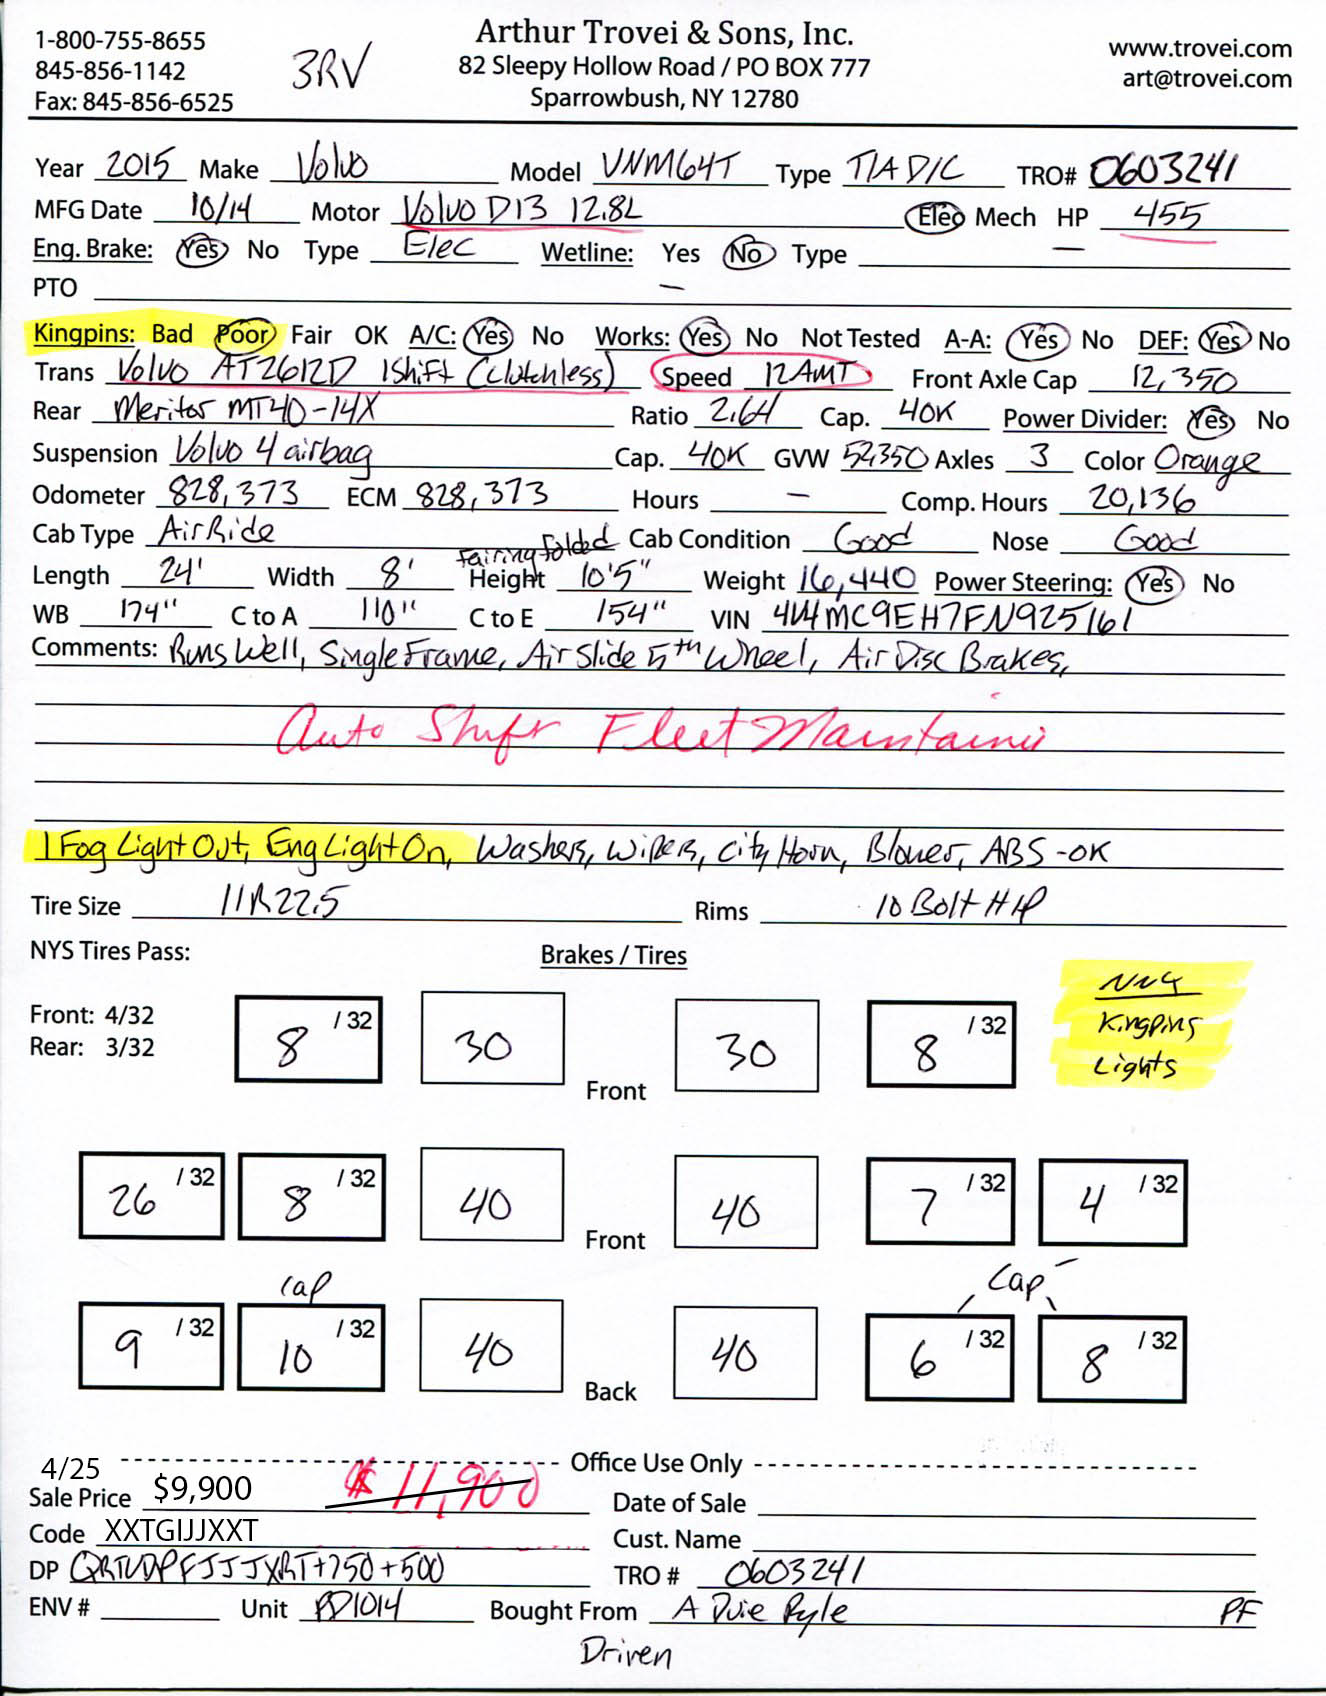 1-800-755-8655
845-856-1142
Fax: 845-856-6525
3RV
Arthur Trovei & Sons, Inc.
82 Sleepy Hollow Road / PO BOX 777
Sparrowbush, NY 12780
www.trovei.com
art@trovei.com
Year 2015 Make Volvo Model VNM64T Type T/A D/C TRO# 0603241
MFG Date 10/14 Motor Volvo D13 12.8L Elec Mech HP 455
Eng. Brake: Yes No Type Elec Wetline: Yes No Type —
PTO —
Kingpins: Bad Poor Fair OK A/C: Yes No Works: Yes No Not Tested A-A: Yes No DEF: Yes No
Trans Volvo AT2612D IShift (Clutchless) Speed 12AMT Front Axle Cap 12,350
Rear Meritor MT40-14X Ratio 2.64 Cap. 40K Power Divider: Yes No
Suspension Volvo 4 airbag Cap. 40K GVW 52,350 Axles 3 Color Orange
Odometer 828,373 ECM 828,373 Hours — Comp. Hours 20,136
Cab Type Air Ride Cab Condition Good Nose Good
fairing folded
Length 24' Width 8' Height 10'5" Weight 16,440 Power Steering: Yes No
WB 174" C to A 110" C to E 154" VIN 4V4MC9EH7FN925161
Comments: Runs Well, Single Frame, Air Slide 5th Wheel, Air Disc Brakes,
Auto Shift Fleet
1 Fog Light Out, Eng Light On, Washers, Wipers, City Horn, Blower, ABS -OK
Tire Size 11R22.5 Rims 10 Bolt H P
NYS Tires Pass: Brakes / Tires
Front: 4/32
Rear: 3/32
8 /32 30 Front 30 8 /32
Kingpins
Lights
26 /32 8 /32 40 Front 40 7 /32 4 /32
cap Cap
9 /32 10 /32 40 Back 40 6 /32 8 /32
4/25 Office Use Only
Sale Price $9,900 $11,900 Date of Sale
Code XXTGIJJXXT Cust. Name
DP QRTUDPFJJJXRT+750+500 TRO # 0603241
ENV # Unit PD1014 Bought From A Duie Pyle PF
Driven